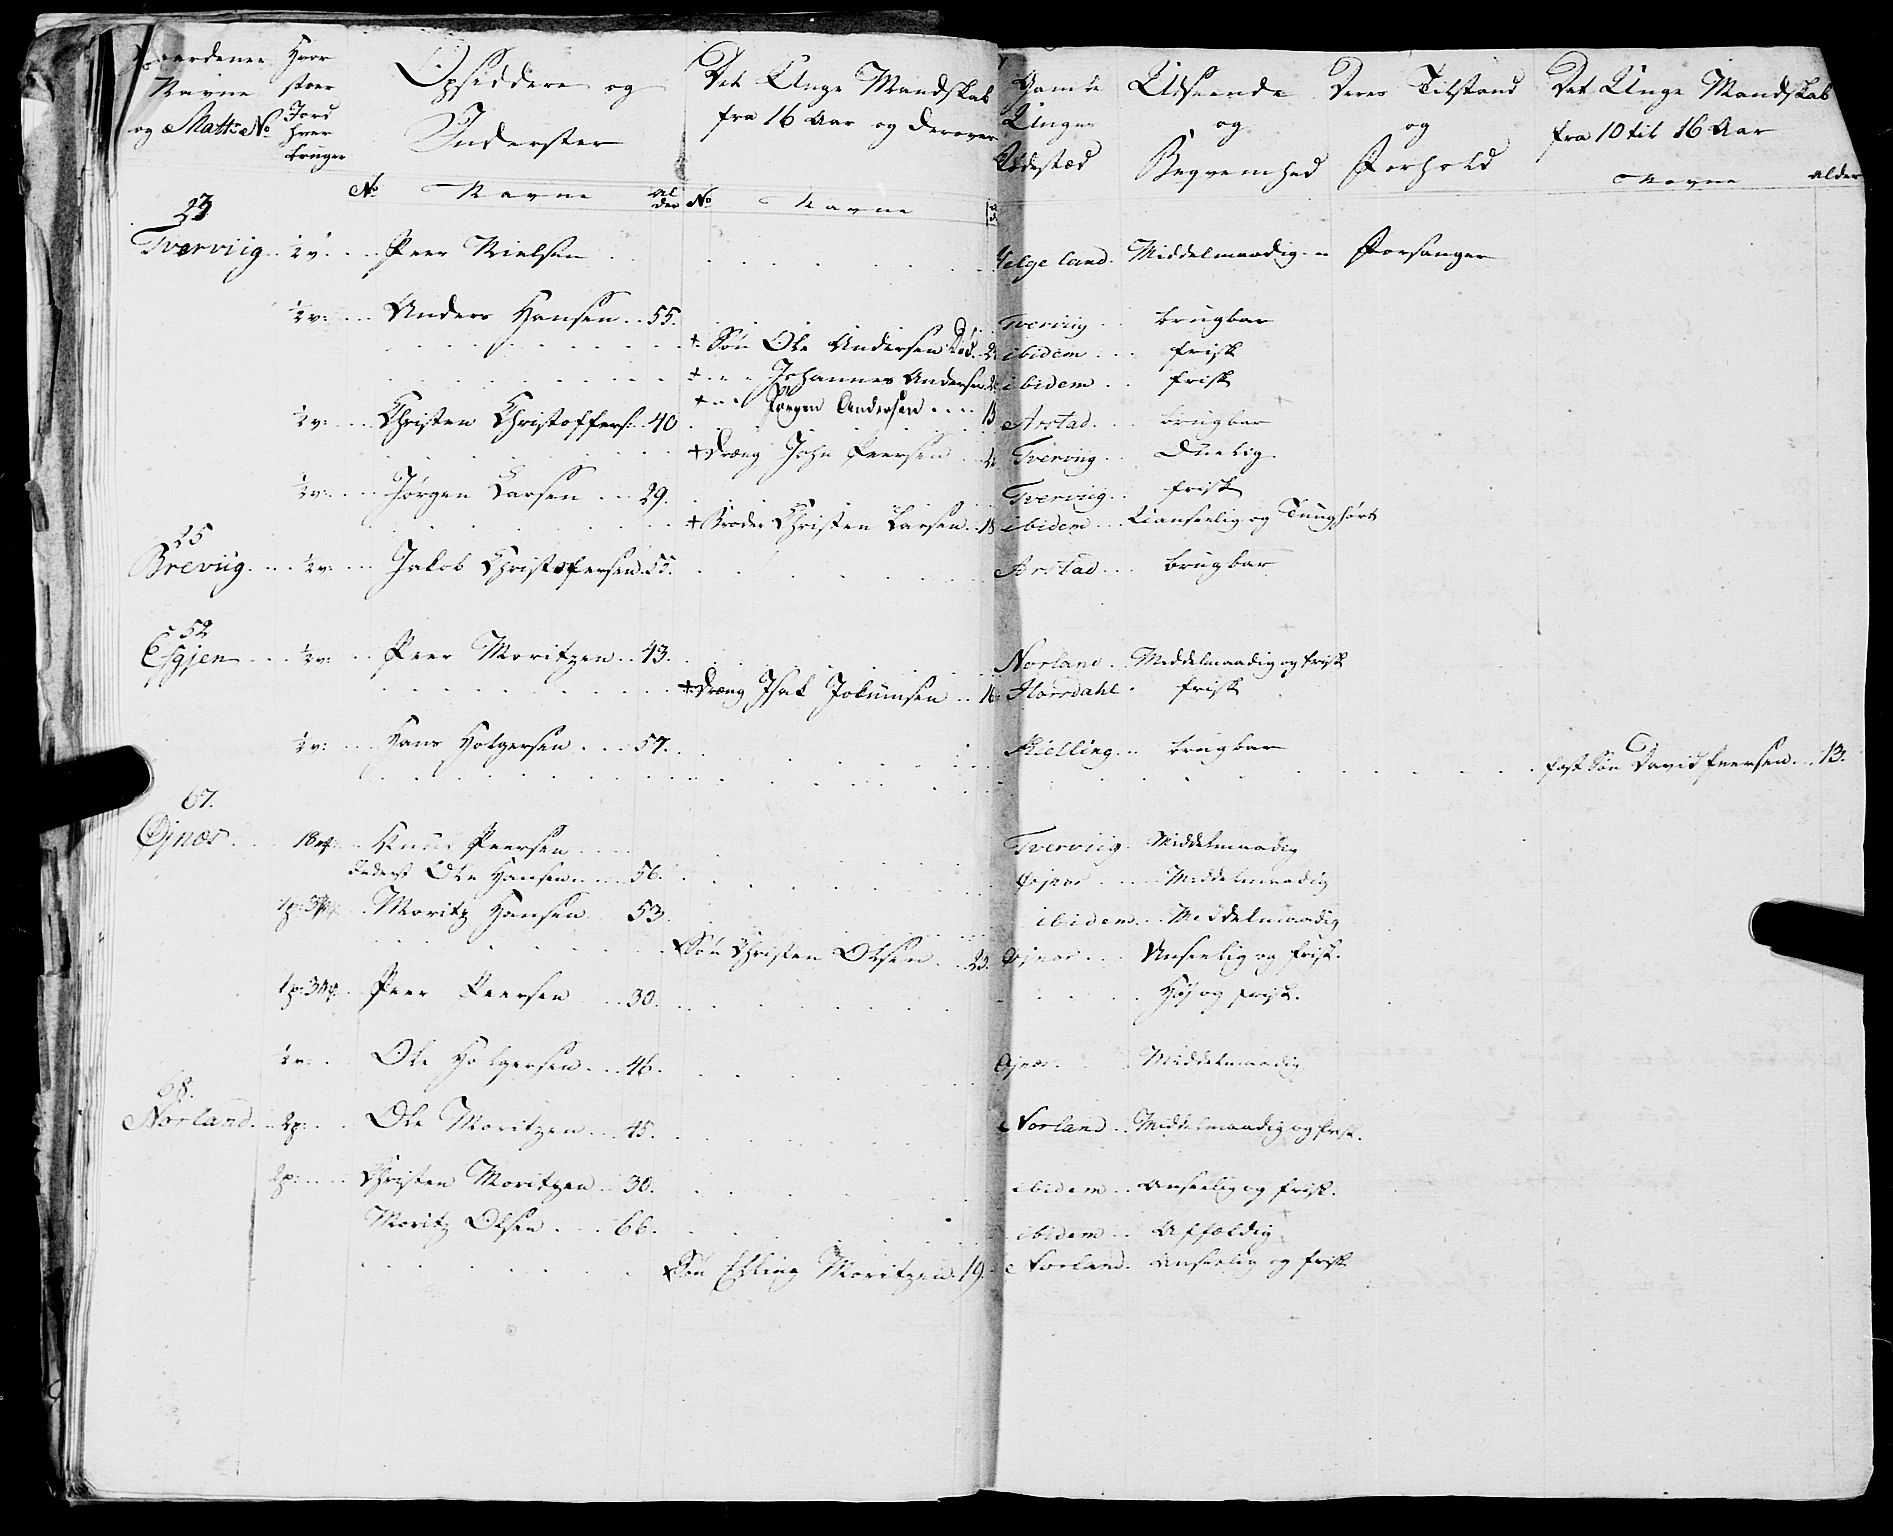 Gaardenes Navne og Matts No
Hvor stor Jord hver bruger
Opsiddere og Inderster
Det Unge Mandskab fra 16 Aar og derover
Gamle Unges Fødested
Udseende og Beqvemhed
Deres Tilstand og Forhold
Det Unge Mandskab fra 10 til 16 Aar
No Navne Alder No Navne
Navne alder
23
Tverviig 1/2 v: Peer Nielsen Helgeland Middelmaadig Forsanger
1/2 v: Anders Hansen 55. Tverviig brugbar
+ Søn Ole Andersen Død ibidem frisk
+ Johannes Andersen ibidem frisk
+ Jørgen Andersen
1/2 v: Christen Christoffers: 40 Arstad brugbar
+ Dræng John Peersen Tverviig Duelig
1/2 v: Jørgen Larsen 29. Tverviig frisk
+ Broder Christen Larsen 18 ibidem Uanseelig og Tunghørt
25
Breviig 1/2 v: Jakob Christofersen 55. Arstad brugbar
52
Esgjen 1/2 v: Peer Moritzen 43. Norland Middelmaadig og frisk
+ Dræng Isak Jokumsen 16 Horsdahl frisk
1/2 v: Hans Holgersen 57. Kielling brugbar
fost Søn David Peersen 13.
67.
Øjnæs 18 Knud Peersen Tverviig Middelmaadig
Inderst Ole Hansen 56. Øjnæs Middelmaadig
1p: 3 Moritz Hansen 53 ibidem Middelmaadig
Søn Christen Olsen 23. Øjnæs Anseelig og frisk.
1p: 3 Peer Peersen 30. Høj og frisk.
1/2 v: Ole Holgersen 46. Øjnæs Middelmaadig
68.
Norland 2p: Ole Moritzen 45. Norland Middelmaadig og frisk.
2p: Christen Moritzen 30. ibidem Anseelig og frisk.
Moritz Olsen 66. ibidem Affældig
Søn Elling Moritzen 19. Norland Anseelig og frisk